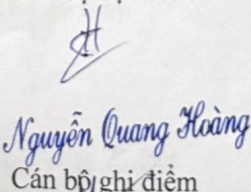 Nguyễn Quang Hoàng
Cán bộ ghi điểm